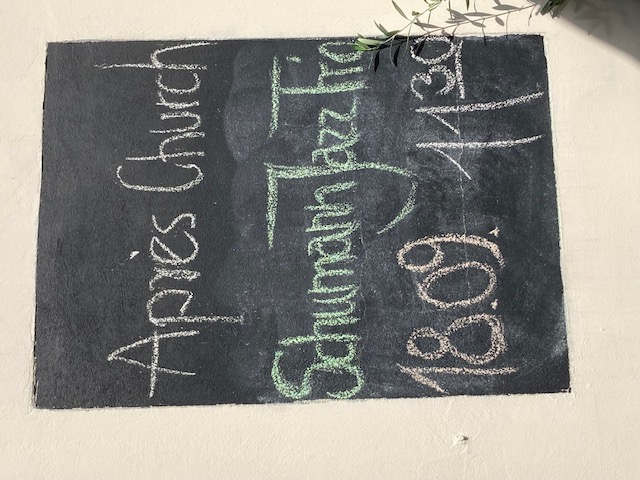 Apries Church
Schumann Jazz Trio
18.09. 11³⁰